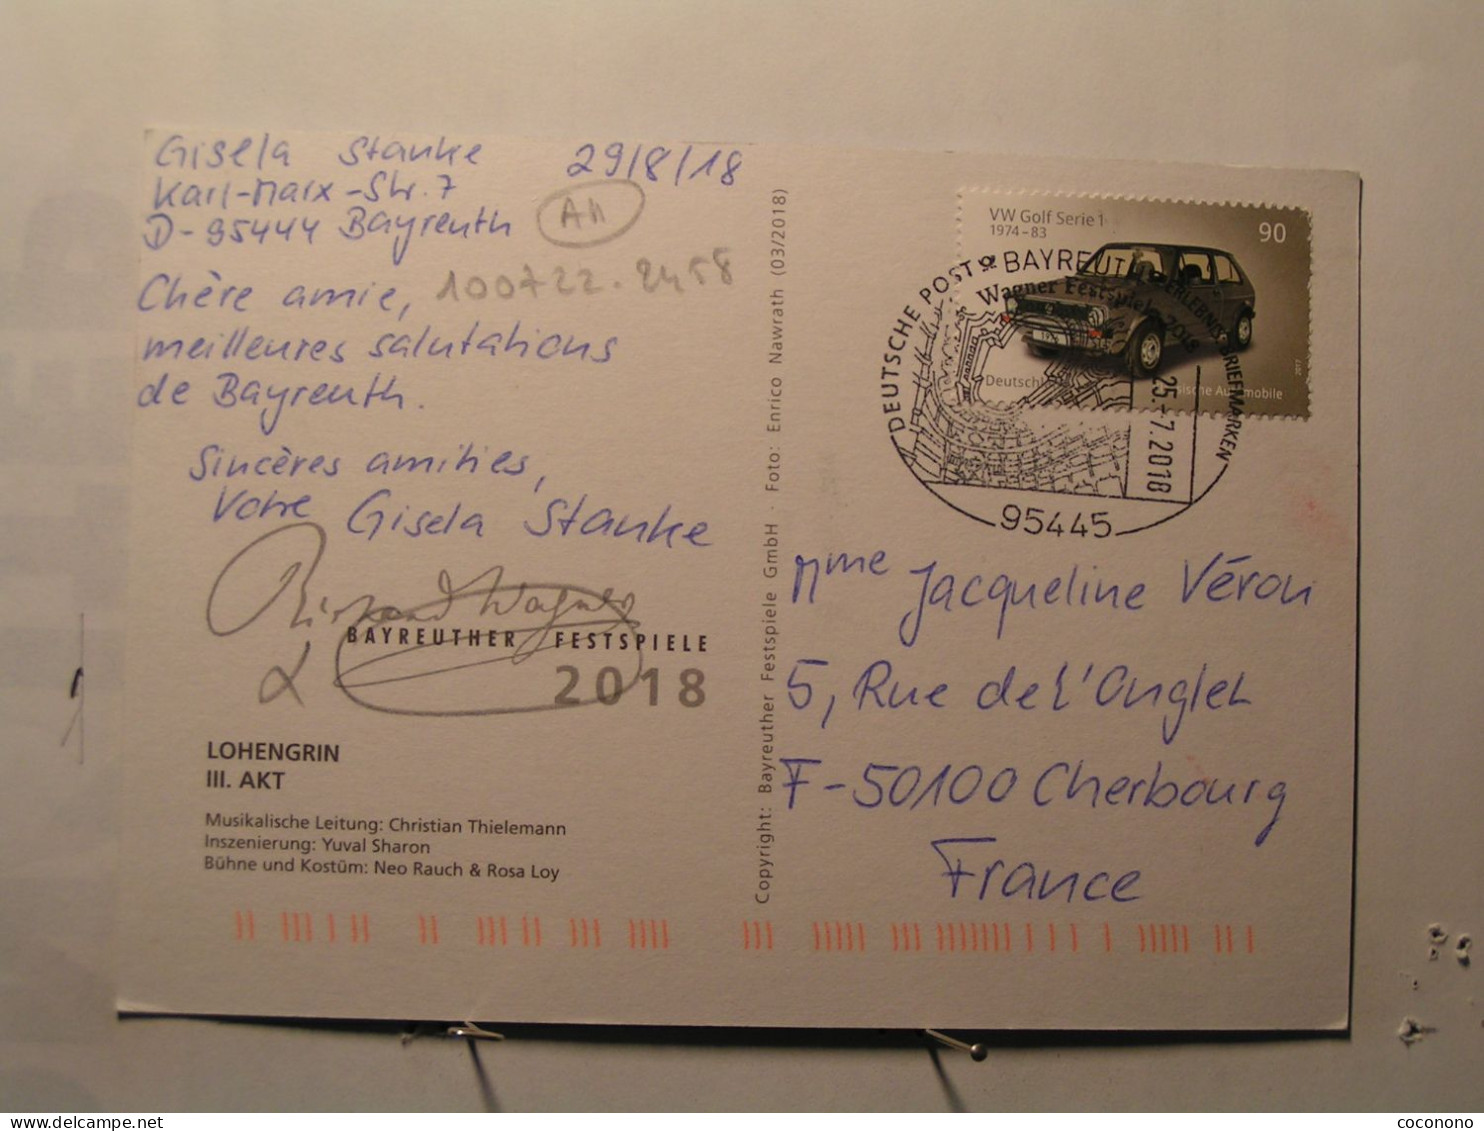 Gisela Stanke 29/8/18
Karl-Marx-Str. 7
D-95444 Bayreuth
Chère amie,
meilleures salutations
de Bayreuth.
Sincères amitiés,
Votre Gisela Stanke
Richard Wagner
BAYREUTHER FESTSPIELE
2018
LOHENGRIN
III. AKT
Musikalische Leitung: Christian Thielemann
Inszenierung: Yuval Sharon
Bühne und Kostüm: Neo Rauch & Rosa Loy
Copyright: Bayreuther Festspiele GmbH · Foto: Enrico Nawrath (03/2018)
VW Golf Serie 1
1974-83
90
2017
DEUTSCHE POST BAYREUTH ERLEBNIS:BRIEFMARKEN
Wagner Festspiele 2018
25.-7.2018
95445
Mme Jacqueline Véron
5, Rue de l'Onglet
F-50100 Cherbourg
France
coconono